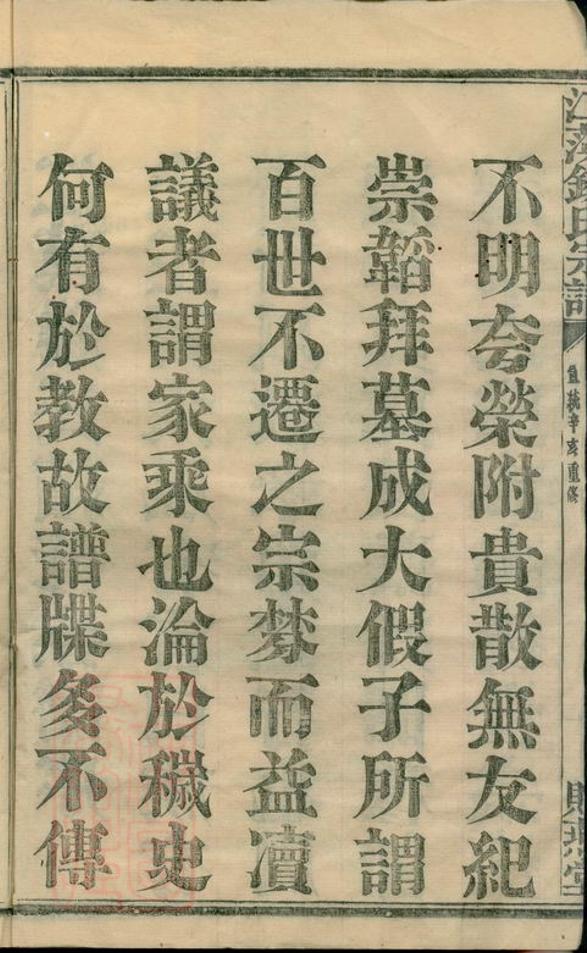 不明夸榮附貴散無友紀
崇韜拜墓成大假子所謂
百世不遷之宗棼而益瀆
議者謂家乘也淪於穢史
何有於教故譜牒多不傳
宣統辛亥重修